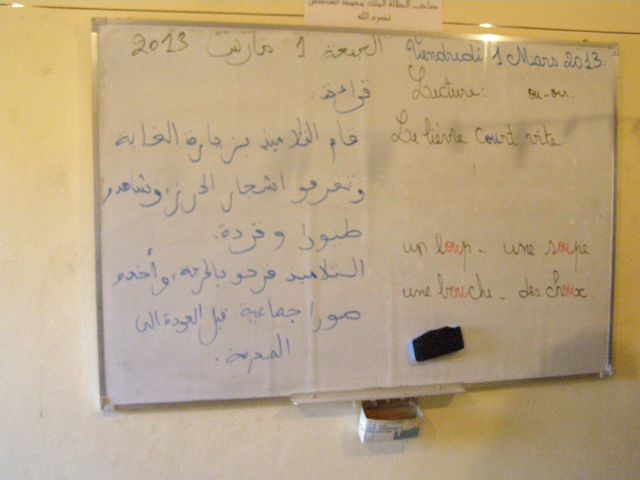 صاحب الجلالة الملك محمد السادس
نصره الله
الجمعة 1 مارس 2013
قراءة:
قام التلاميذ بزيارة الغابة
وتعرفو اشجار الارز، وشاهدو
طيورا وقردة.
التلاميذ فرحو بالرحلة، وأخذو
صورا جماعية قبل العودة الى
المدرسة.
Vendredi 1 Mars 2013
Lecture: ou-ou.
Le lièvre court vite
un loup - une soupe
une bouche - des choux